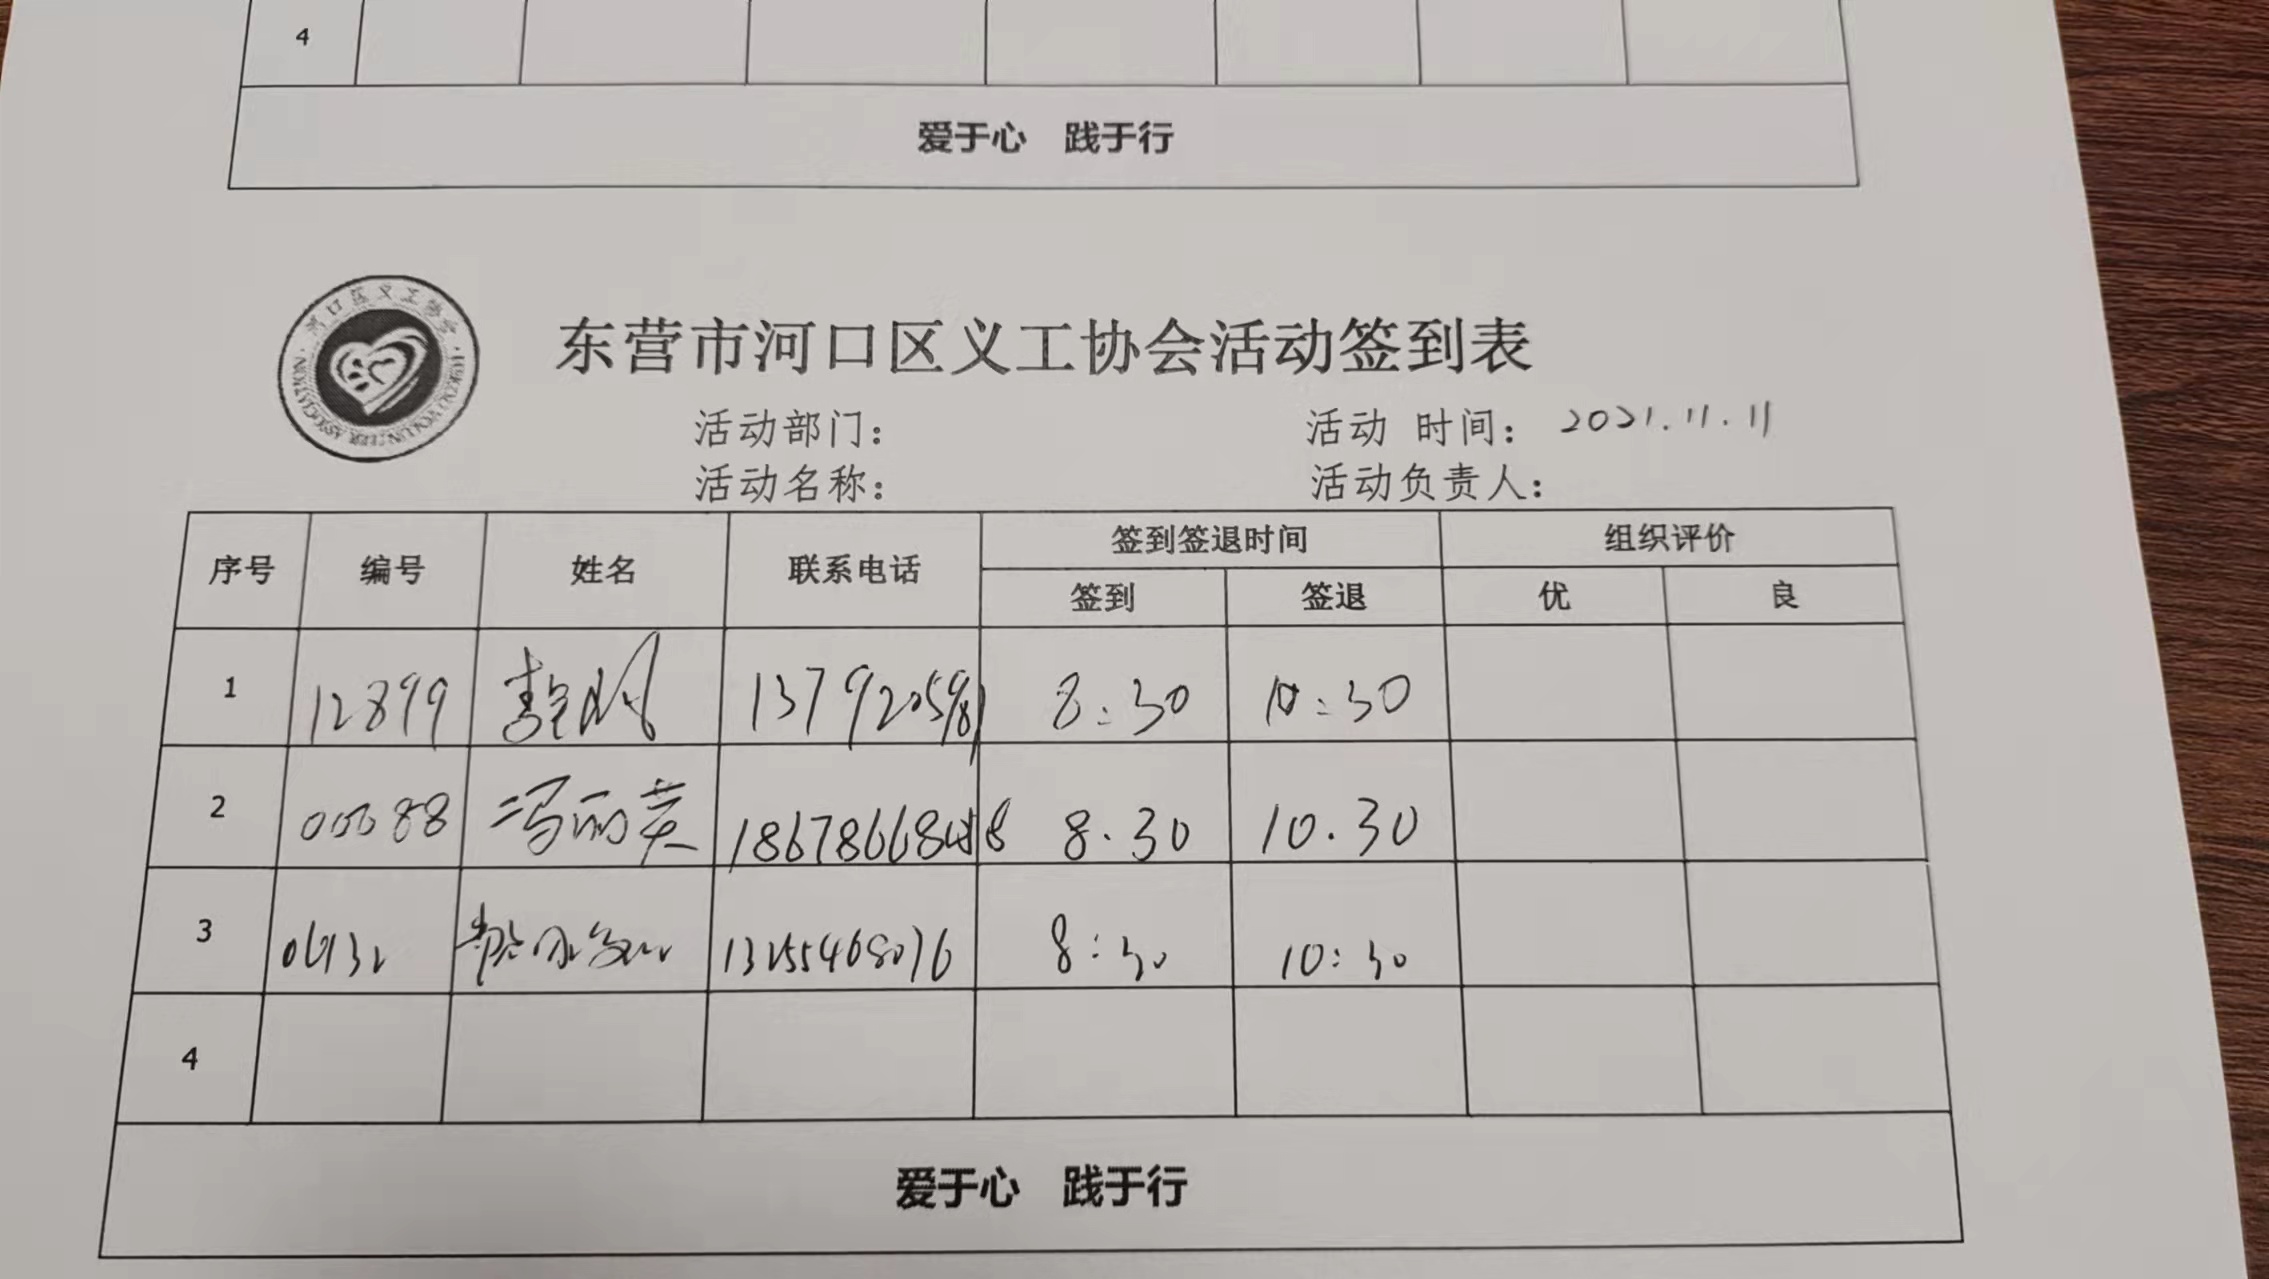 4
爱于心 践于行
河口区义工协会
HEKOU VOLUNTEER ASSOCIATION
东营市河口区义工协会活动签到表
活动部门： 活动 时间： 2021.11.11
活动名称： 活动负责人：
序号 编号 姓名 联系电话 签到签退时间 组织评价
签到 签退 优 良
1 12899 8:30 10:30
2 00088 冯丽英 8.30 10.30
3 13255468076 8:30 10:30
4
爱于心 践于行